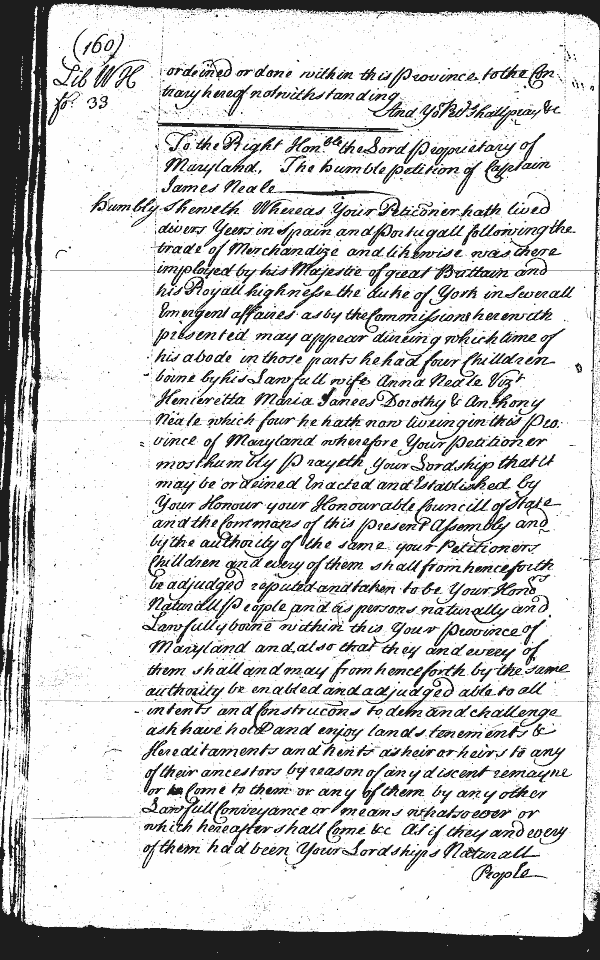 (160)
Lib W H
fo. 33
ordeined or done within this Province to the Con
trary hereof notwithstanding
And Yor Petr shall pray &c
To the Right Honble the Lord Proprietary of
Maryland, The humble petition of Captain
James Neale
Humbly Sheweth Whereas Your Peticoner hath lived
divers Yeers in Spain and Portugall following the
trade of Merchandize and likewise was there
imployed by his Majestie of great Brittain and
his Royall highnesse the duke of York in severall
Emergent affaires as by the Commissions herewith
presented may appear dureing which time of
his abode in those parts he had four Children
borne by his Lawfull wife Anna Neale Vizt
Henieretta Maria James Dorothy & Anthony
Neale which four he hath now liveing in this Pro:
vince of Maryland wherefore Your Petitioner
most humbly Prayeth your Lordship that it
may be ordeined Enacted and Established by
Your Honour your Honourable Councill of State
and the Commons of this present Assembly and
by the authority of the same your Petitioners
Children and every of them shall from henceforth
be adjudged reputed and taken to be Your Honrs
Naturall People and as persons naturally and
Lawfully borne within this Your Province of
Maryland and also that they and every of
them shall and may from henceforth by the same
authority be enabled and adjudged able to all
intents and Construcons to demand challenge
ask have hold and enjoy lands tenements &
Hereditaments and rents as heir or heirs to any
of their ancestors by reason of any discent remayne
or Come to them or any of them by any other
Lawfull Conveyance or means whatsoever or
which hereafter shall Come &c As if they and every
of them had been Your Lordships Naturall
People